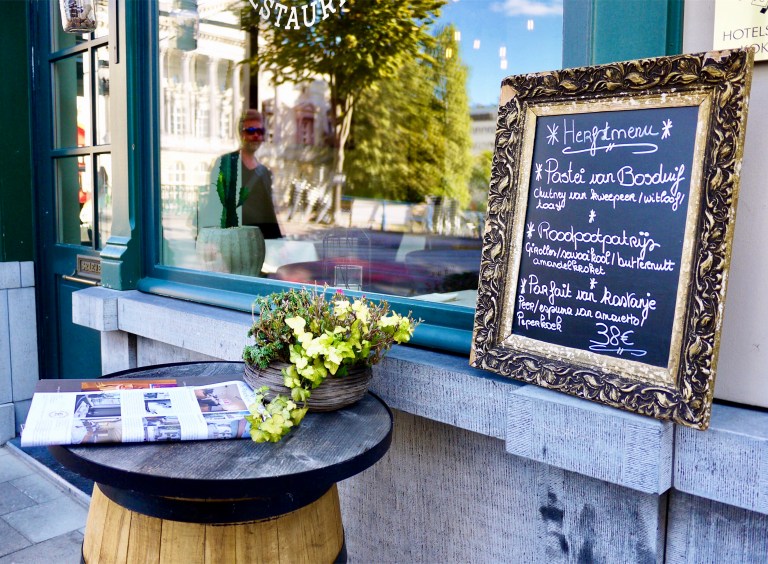 ESTAURA
HOTELS
Herfstmenu
Pastei van Bosduif
Chutney van kweepeer/witloof/
toast
Roodpootpatrijs
Girolles/savooikool/butternut
amandelkroket
Parfait van kastanje
Peer/espuma van amaretto/
Peperkoek
38€